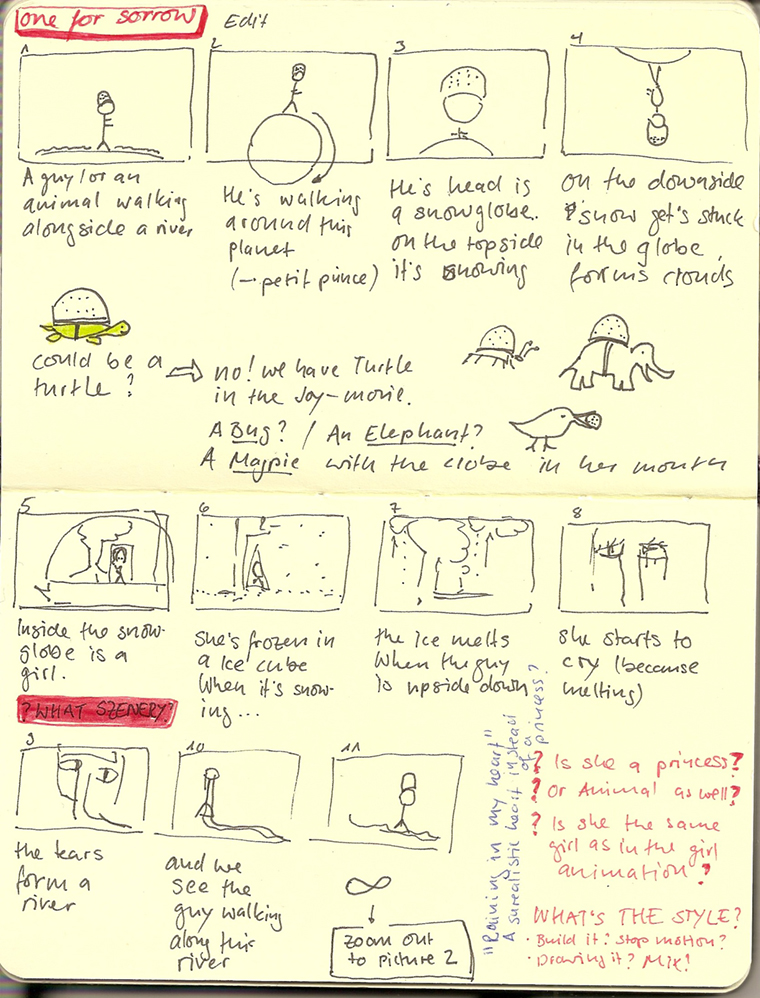 one for sorrow Edit
1
A guy / or an
animal walking
alongside a river
2
He's walking
around this
planet
(→ petit prince)
3
He's head is
a snowglobe.
on the topside
it's snowing
4
on the downside
snow get's stuck
in the globe,
forms clouds
could be a
turtle?
no! we have Turtle
in the Joy-movie.
A Bug? / An Elephant?
A Magpie with the globe in her mouth
5
Inside the snow-
globe is a
girl.
?WHAT SZENERY?
6
she's frozen in
a ice cube
when it's snow-
ing...
7
the ice melts
when the guy
is upside down
8
she starts to
cry (because
melting)
9
the tears
form a
river
10
and we
see the
guy walking
along this
river
11
∞
zoom out
to picture 2
"Raining in my heart"
A surealistic heart instead
of a princess?
? Is she a princess?
? Or Animal as well?
? Is she the same
girl as in the girl
animation?
WHAT'S THE STYLE?
· Build it? Stop motion?
· Drawing it? Mix!